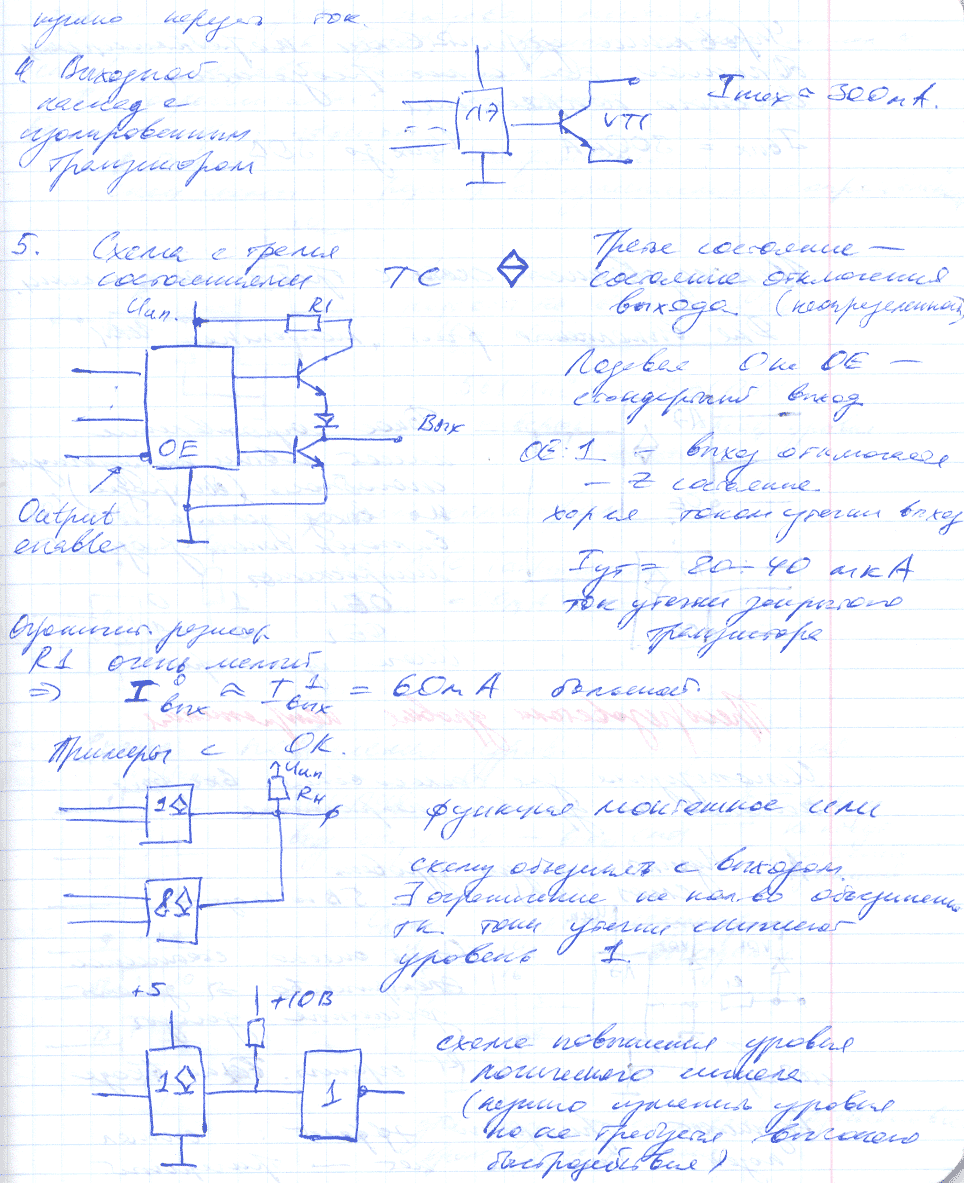 нужно передать ток.
4. Выходной
каскад с
изолированным
транзистором
ЛЭ
VT1
Imax = 300мА.
5. Схема с тремя
состояниями ТС
Третье состояние —
состояние отключения
выхода (неопределенность)
Uип.
R1
OE
Вых
Output
enable
Подавая 0 на OE —
стандартный выход
OE: 1 – выход отключаем
– Z состояние
током утечки выход
Iут = 20÷40 мкА
ток утечки закрытого
транзистора
Огранич. резистор
R1 очень малый
⇒ I⁰вых ≈ I¹вых = 60мА
Примеры с ОК.
Uип
Rн
1
&
функция монтажное или
схему объединять с выходом.
Ǝ ограничение на кол-во объединений
т.к. токи утечки снижают
уровень 1.
+5
+10В
1
1
схема повышения уровня
логического сигнала
(нужно изменить уровня
но не требуется высокого
быстродействия)